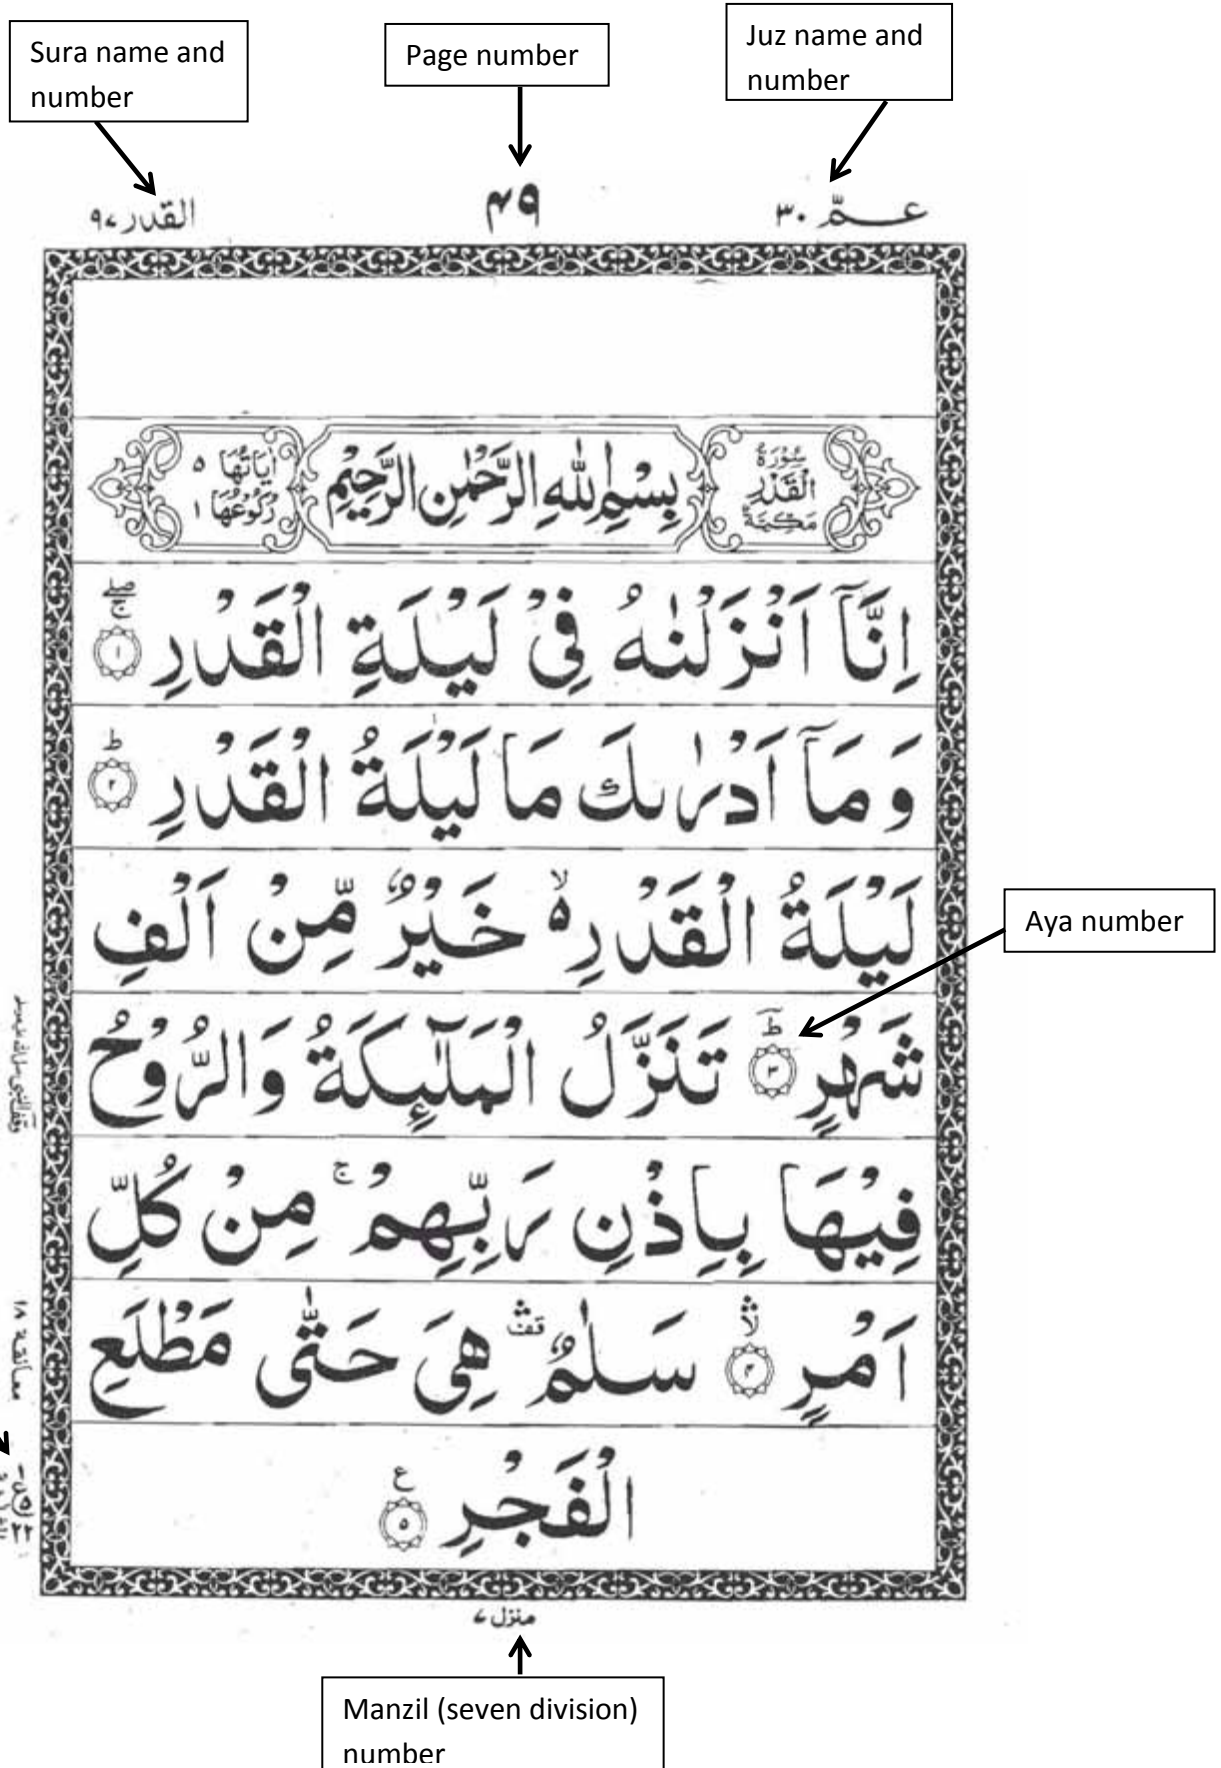 Sura name and
number
Page number
Juz name and
number
القدر ٩٧
٤٩
عـمّ ٣٠
سُوْرَةُ
الْقَدْرِ
مَكِّيَّةٌ
بِسْمِ اللّٰهِ الرَّحْمٰنِ الرَّحِيْمِ
اٰيَاتُهَا ٥
رُكُوْعُهَا ١
اِنَّاۤ اَنْزَلْنٰهُ فِیْ لَيْلَةِ الْقَدْرِ ۚۖ ١
وَ مَاۤ اَدْرٰىكَ مَا لَيْلَةُ الْقَدْرِ ؕ ٢
لَيْلَةُ الْقَدْرِ ۙ۬ خَيْرٌ مِّنْ اَلْفِ
Aya number
شَهْرٍ ؕ ٣ تَنَزَّلُ الْمَلٰٓئِكَةُ وَالرُّوْحُ
فِيْهَا بِاِذْنِ رَبِّهِمْ ۚ مِنْ كُلِّ
اَمْرٍ ۙۛ ٤ سَلٰمٌ ۛ قف هِیَ حَتّٰى مَطْلَعِ
الْفَجْرِ ع ٥
معانقة ١٨
منزل ٧
Manzil (seven division)
number